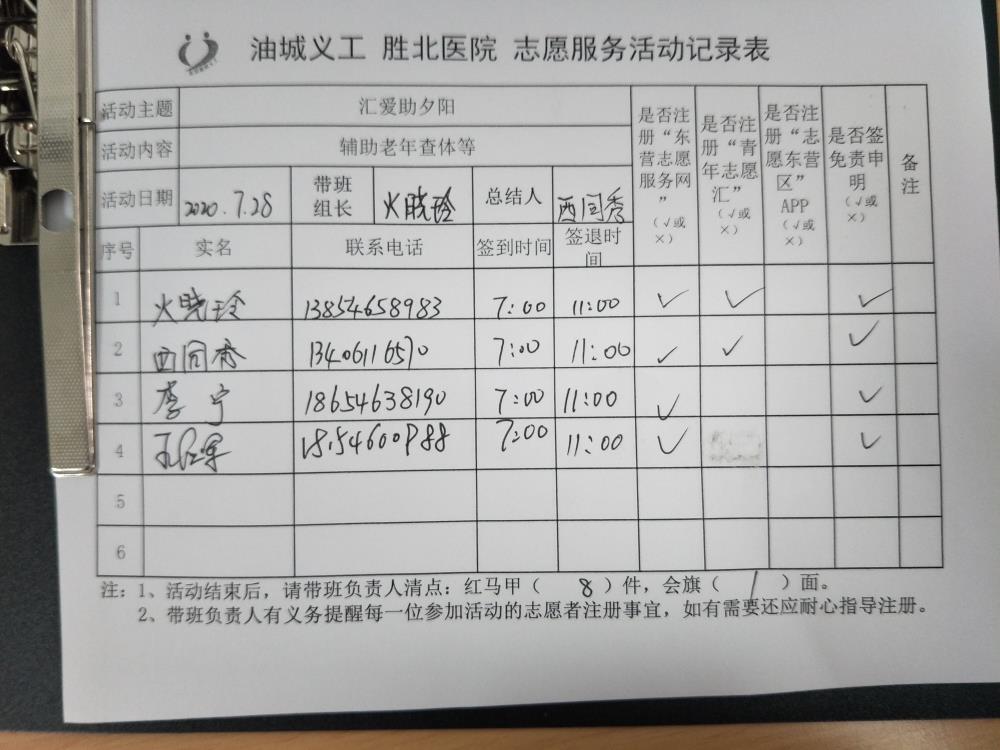 油城义工 胜北医院 志愿服务活动记录表
活动主题 汇爱助夕阳
活动内容 辅助老年查体等
活动日期 2020.7.28 带班组长 火晓玲 总结人 西闫秀
是否注册“东营志愿服务网”（√或×）
是否注册“青年志愿汇”（√或×）
是否注册“志愿东营区”APP（√或×）
是否签免责申明（√或×）
备注
序号 实名 联系电话 签到时间 签退时间
1 火晓玲 13854658983 7:00 11:00 ✓ ✓ ✓
2 13406116570 7:00 11:00 ✓ ✓ ✓
3 李宁 18654638190 7:00 11:00 ✓ ✓
4 7:00 11:00 ✓ ✓
5
6
注：1、活动结束后，请带班负责人清点：红马甲（ 8 ）件，会旗（ / ）面。
2、带班负责人有义务提醒每一位参加活动的志愿者注册事宜，如有需要还应耐心指导注册。